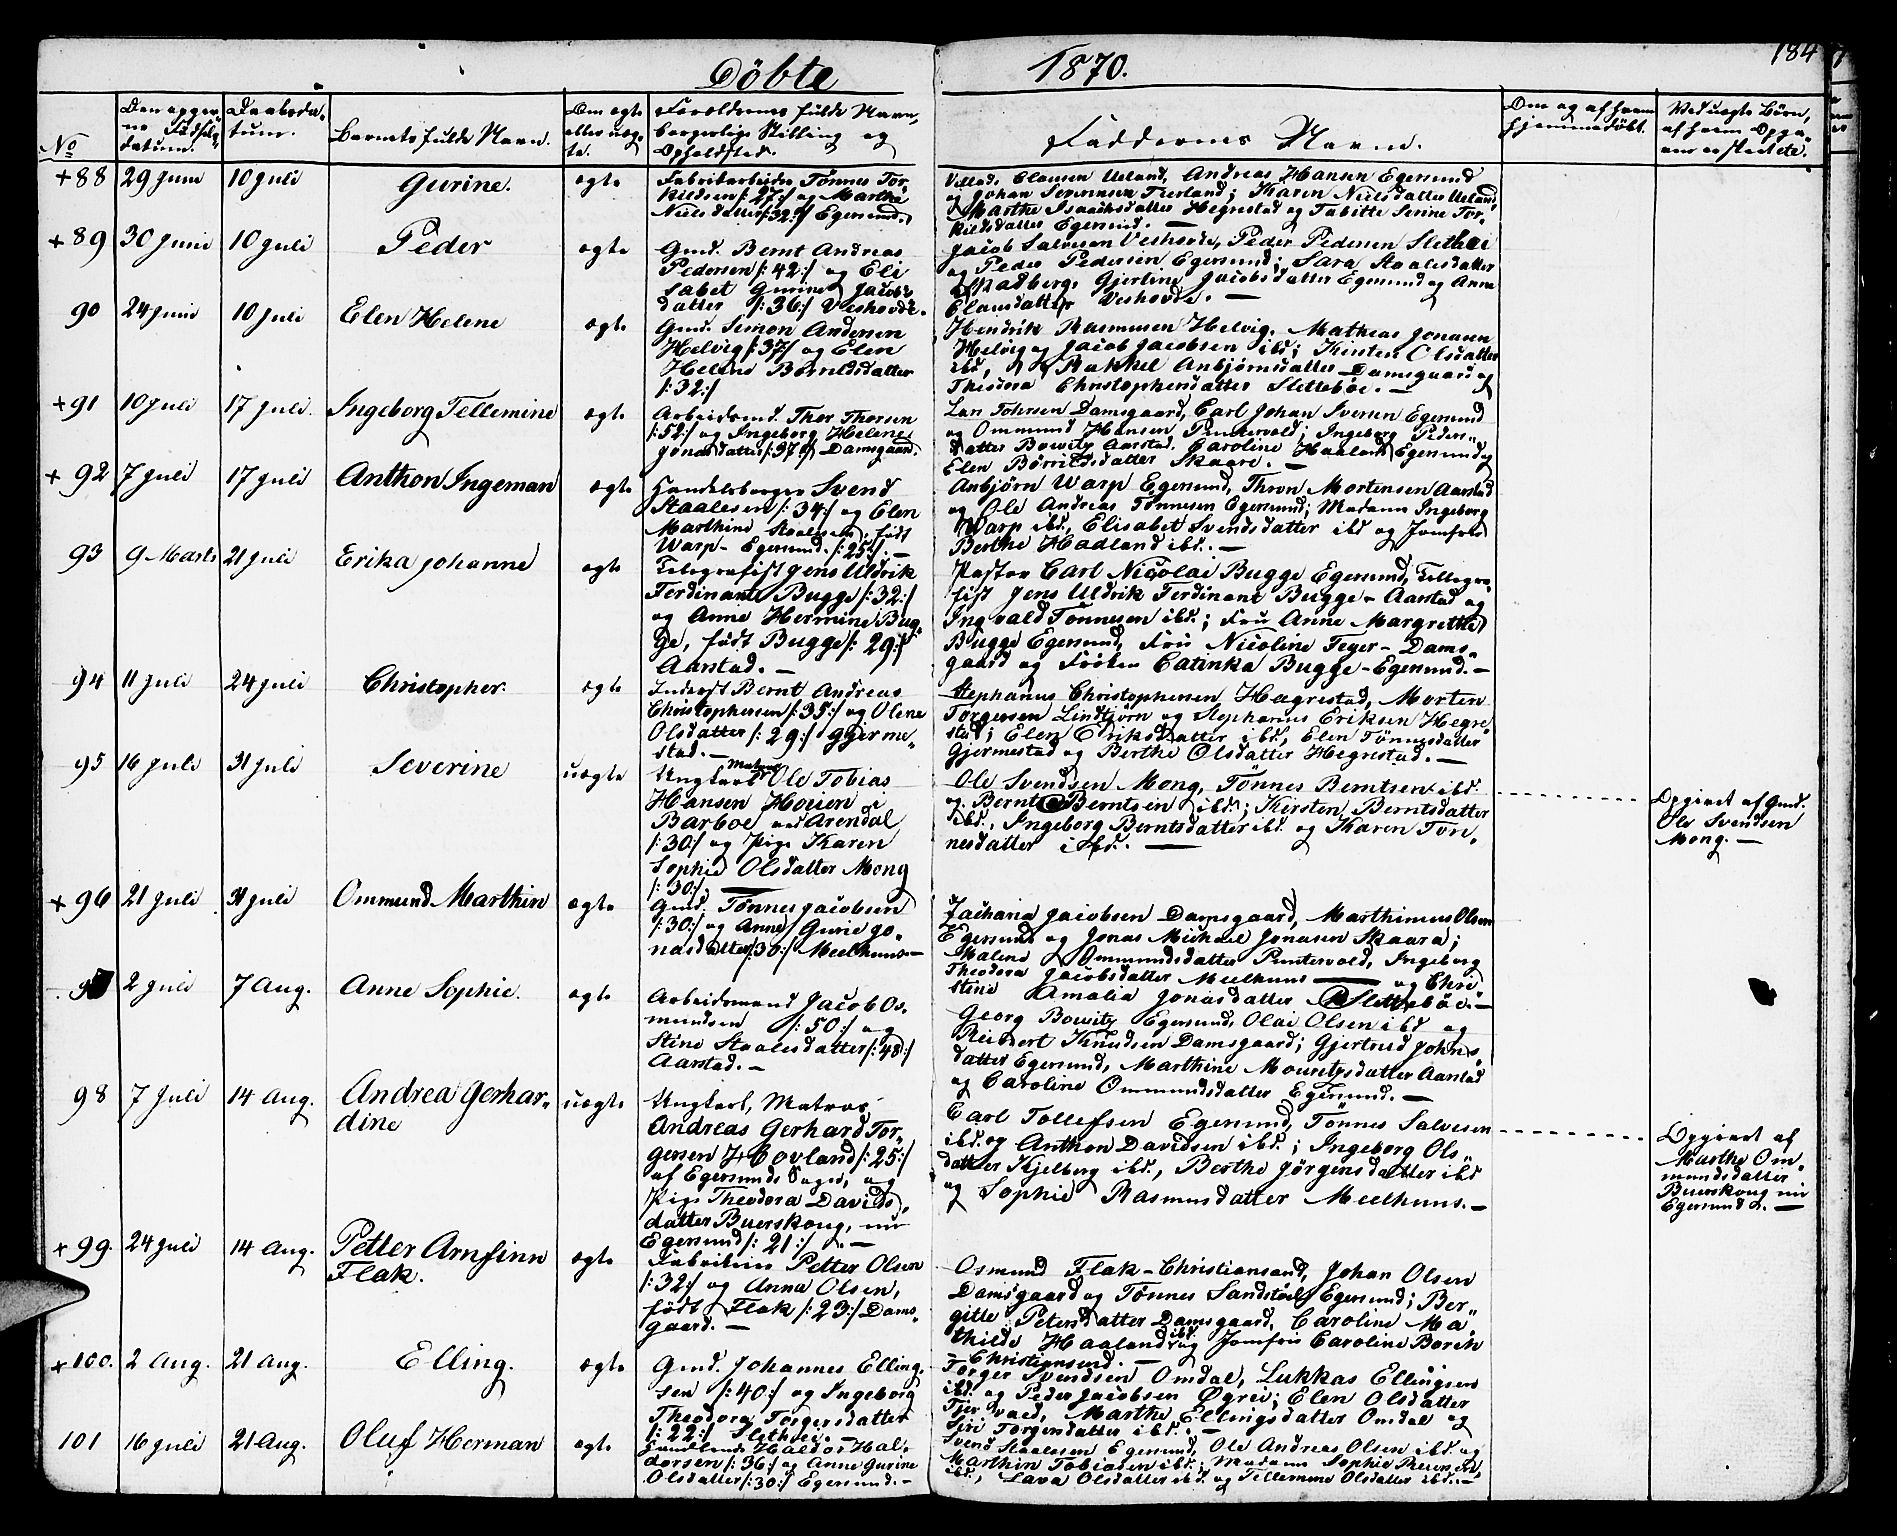 Döbte 1870. 184
No
Den opgivne Fødselsdatum.
Daabsdatum.
Barnets fulde Navn.
Om ægte eller uægte.
Forældrenes fulde Navn, borgerlige Stilling og Opholdsted.
Faddernes Navne.
Om og af hvem hjemmedöbt.
Ved uægte Börn, af hvem Opgaven er skeet etc.
+88 29 Juni 10 Juli Gurine. ægte
Fabrikarbeider Tönnes Tor-
kildsen /:27:/ og Marthe
Nielsdatter /:32:/ Egersund.
Villad Clausen Ueland, Andreas Hansen Egersund
og Johan Sörensen Tuerland; Karen Nielsdatter Ueland,
Marthe Isaachsdatter Hegrestad og Tabitte Serine Tor-
kildsdatter Egersund. —
+89 30 Juni 10 Juli Peder ægte
Gmd. Bernt Andreas
Pedersen /:42:/ og Eli
sabet Gurine Jacobs
datter /:36:/ Veshovde.
Jacob Salvesen Veshovde, Peder Pedersen Slethei
og Peder Pedersen Egersund; Sara Staalesdatter
Gjertine Jacobsdatter Egersund og Anne
Elausdatter Veshovde. —
90 24 Juni 10 Juli Elen Helene ægte
Gmd. Simon Andersen
Helvig /:37/ og Elen
Helene Börrildsdatter
/:32:/
Hendrik Rasmusen Helvig, Mathias Jonasen
Helvig og Jacob Jacobsen ibd; Kirsten Olsdatter
ibd, Rakkel Anbjörnsdatter Damsgaard og
Theodora Christophersdatter Slettebøe. —
+91 10 Juli 17 Juli. Ingeborg Tellemine ægte
Arbeidsmd. Thor Thorsen
/:52:/ og Ingeborg Helene
Jonasdatter /:37:/ Damsgaard.
Lars Tohrsen Damsgaard, Carl Johan Iversen Egersund
og Ommund Hansen Puntervold; Ingeborg Peders-
datter Bowitz Aarstad, Caroline Haaland Egersund og
Elen Börrildsdatter Skaare. —
+92 7 Juli 17 Juli Anthon Ingeman ægte
Handelsborger Svend
Staalesen /:34:/ og Elen
Marthine Staalesen, født
Warp - Egersund. /:25:/. —
Anbjörn Warp Egersund, Thron Mortensen Aarstad
og Ole Andreas Tönnesen Egersund; Madame Ingeborg
Warp ibd., Elisabet Svendsdatter ibd og Jomfru
Berthe Hadland ibd. —
93 9 Marts 21 Juli Erika Johanne ægte
Telegrafist Jens Uldrik
Ferdinant Bugge /:32:/
og Anne Hermine Bug-
ge, født Bugge /:29:/
Aarstad. —
Pastor Carl Nicolai Bugge Egersund, Telegra-
fist Jens Uldrik Ferdinant Bugge - Aarstad og
Ingvald Tönnesen ibd.; Fru Anne Margrethe
Bugge Egersund, Fru Nicoline Feyer - Dams-
gaard og Fröken Catinka Bugge - Egersund. —
94 11 Juli 24 Juli Christopher. ægte
Inderst Bernt Andreas
Christophersen /:35:/ og Olene
Olsdatter /:29:/ Gjerme-
stad. —
Stephanus Christophersen Hagrestad, Morten
Torgersen Lindtjörn og Stephanus Eriksen Hegre
stad; Elen Eriksdatter ibd, Elen Tönnesdatter
Gjermestad og Berthe Olsdatter Hegrestad. —
95 16 Juli 31 Juli Severine uægte
Ungkarl Matros Ole Tobias
Hansen Houen
Barboe ved Arendal
/:30:/ og Pige Karen
Sophie Olsdatter Mong
/:30:/ —
Ole Svendsen Mong, Tönnes Berntsen ibd.
og Bernt Berntsen ibd.; Kirsten Berntsdatter
ibd., Ingeborg Berntsdatter ibd. og Karen Tön-
nesdatter ibd. —
Opgivet af Gmd.
Ole Svendsen
Mong. —
+96 21 Juli 31 Juli Ommund Marthin ægte
Gmd. Tönnes Jacobsen
/:30:/ og Anne Gurie Jo-
nasdatter /:30:/ Meelhuus —
Zacharia Jacobsen Damsgaard, Marthinius Olsen
Egersund og Jonas Michael Jonasen Skaara;
Malene Ommundsdatter Puntervold, Ingeborg
Theodora Jacobsdatter Meelhuus — og Chri
stine Amalia Jonasdatter Slettebøe. —
97 2 Juli 7 Aug. Anne Sophie. ægte
Arbeidsmand Jacob Os-
mundsen /:50:/ og
Stine Staalesdatter /:48:/
Aarstad. —
Georg Bowitz Egersund, Olai Olsen ibd og
Reinert Knudsen Damsgaard; Gjertrud Johns-
datter Egersund, Marthine Mouritzdatter Aarstad
og Caroline Ommundsdatter Egersund. —
98 7 Juli 14 Aug. Andrea Gerhar-
dine uægte
Ungkarl, Matros
Andreas Gerhard Tor-
gersen Hovland /:25:/
af Egersunds Sogn, og
Pige Theodora Davids
datter Buerskoug, nu
Egersund /:21:/. —
Carl Tollefsen Egersund, Tönnes Salvesen
ibd. og Anthon Davidsen ibd.; Ingeborg Ols-
datter Kjelberg ibd., Berthe Jörgensdatter ibd
og Sophie Rasmusdatter Meelhuus. —
Opgivet af
Marthe Om-
mundsdatter
Buerskoug nu
Egersund. —
+99. 24 Juli 14 Aug. Petter Arnfinn
Flak. ægte
Fabrikeier Petter Olsen
/:32:/ og Anna Olsen,
født Flak /:23:/ Dams-
gaard. —
Osmund Flak - Christiansand, Johan Olsen
Damsgaard og Tönnes Sandstöl Egersund; Ber-
gitte Petersdatter Damsgaard, Caroline Ma-
thilde Haaland ibd. og Jomfru Caroline Borch
- Christiansand. —
+100. 2 Aug. 21 Aug. Elling. ægte
Gmd. Johannes Elling-
sen /:40:/ og Ingeborg
Theodora Torgersdatter
/:22:/ Slethei. —
Torger Svendsen Omdal, Lukkas Ellingsen
ibd. og Peder Jacobsen Øgrei; Elen Olsdatter
Marthe Ellingsdatter Omdal og
Siri Torgersdatter ibd. —
101 16 Juli 21 Aug. Oluf Herman ægte
Haldor Hal-
dorsen /:36:/ og Anne Gurine
Olsdatter /:30:/ Egersund. —
Svend Staalesen Egersund, Ole Andreas Olsen ibd. og
Marthin Tobiasen ibd.; Madame Sophie
ibd., Lava Olsdatter ibd. og Tellemine Olsdatter ibd. —